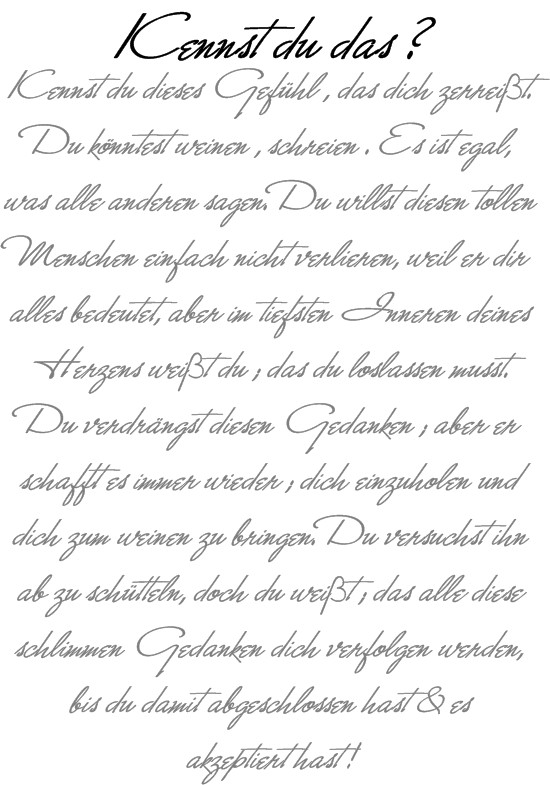 Kennst du das ?
Kennst du dieses Gefühl , das dich zerreißt.
Du könntest weinen , schreien . Es ist egal,
was alle anderen sagen. Du willst diesen tollen
Menschen einfach nicht verlieren, weil er dir
alles bedeutet, aber im tiefsten Inneren deines
Herzens weißt du ; das du loslassen musst.
Du verdrängst diesen Gedanken ; aber er
schafft es immer wieder ; dich einzuholen und
dich zum weinen zu bringen. Du versuchst ihn
ab zu schütteln, doch du weißt ; das alle diese
schlimmen Gedanken dich verfolgen werden,
bis du damit abgeschlossen hast & es
akzeptiert hast !